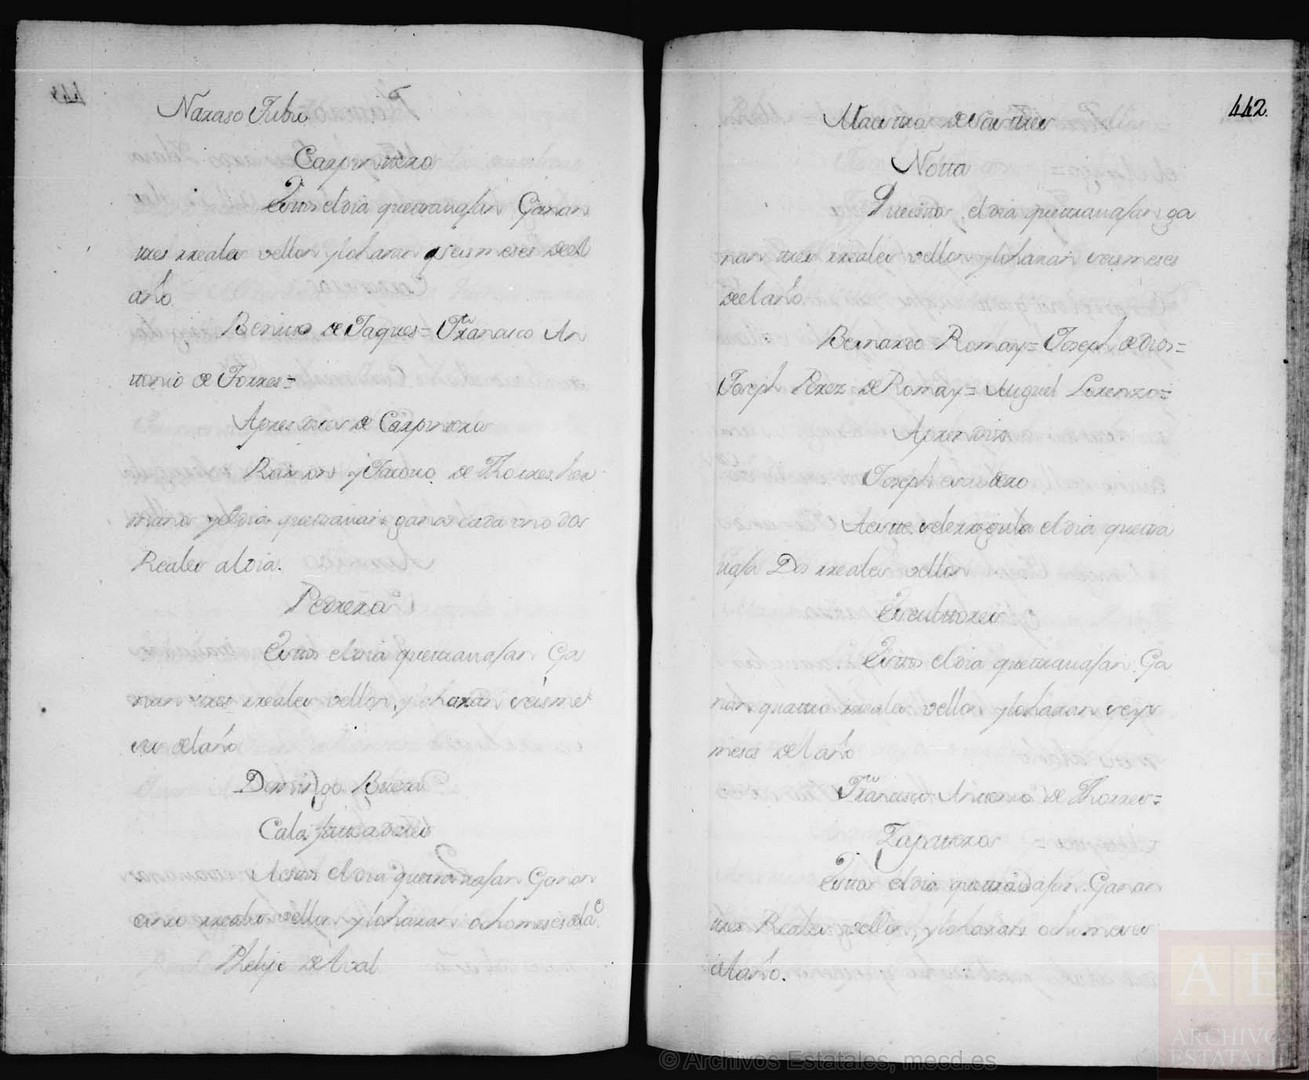 Naraso Jubu
Carpintero
Estos el dia que travajan Ganan
tres rreales vellon y lo haran seis meses del
año
Benito de Jaques = Franzisco An
tonio de Torres =
Aprendices de Carpintero
Ramon y Jacovo de Torres her
manos y el dia que travajan ganas cada uno dos
Reales al dia.
Pedrero
Estos el dia que travajan Ga
nan tres rreales vellon, y haran seis me
ses del año
Domingo
Calafateadores
A estos el dia que travajan Ganan
cinco rreales vellon y lo haran ocho meses
Phelipe de Aval
442.
Maestros de Sastres
Notta
Que estos el dia que travajan ga
nan tres rreales vellon y lo haran seis meses
del año.
Bernardo Romay = Joseph de Dios =
Joseph Perez de Romay = Miguel Lorenzo =
Aprendiz
Joseph
A este se le regula el dia que tra
vaja Dos rreales vellon
Escultores
Estos el dia que travajan Ga
nan quatro rreales vellon y lo haran seys
meses del año
Francisco Antonio de Torres =
Zapateros
Estos el dia que travajan Ganan
tres Reales vellon y lo haran ocho meses
al año.
© Archivos Estatales, mecd.es
AE
ARCHIVOS
ESTATALES